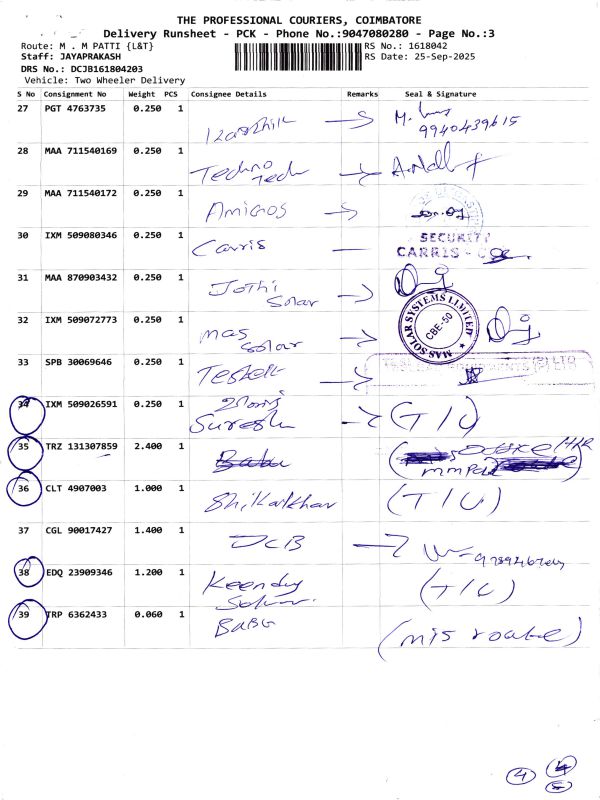 THE PROFESSIONAL COURIERS, COIMBATORE
Delivery Runsheet - PCK - Phone No.:9047080280 - Page No.:3
Route: M . M PATTI {L&T}
RS No.: 1618042
Staff: JAYAPRAKASH
RS Date: 25-Sep-2025
DRS No.: DCJB161804203
Vehicle: Two Wheeler Delivery
S No Consignment No Weight PCS Consignee Details Remarks Seal & Signature
27 PGT 4763735 0.250 1
9940439615
28 MAA 711540169 0.250 1 Techno
Tech
29 MAA 711540172 0.250 1 Amigos
30 IXM 509080346 0.250 1 Carris SECURITY
CARRIS -
31 MAA 870903432 0.250 1 Jothi
Solar
32 IXM 509072773 0.250 1 mas
solar
MAS SOLAR SYSTEMS LIMITED
CBE-50
33 SPB 30069646 0.250 1
34 IXM 509026591 0.250 1 Suresh (T/C)
35 TRZ 131307859 2.400 1 Babu
36 CLT 4907003 1.000 1 (T/C)
37 CGL 90017427 1.400 1 JCB
38 EDQ 23909346 1.200 1 (T/C)
39 TRP 6362433 0.060 1 (mis roate)
4